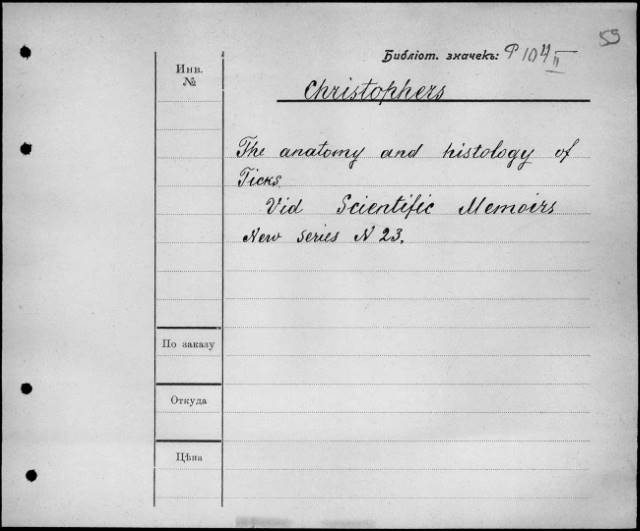 59
Библіот. значекъ: P 104 II
Инв.
№
Christophers
The anatomy and histology of
Ticks.
Vid Scientific Memoirs
New Series N 23.
По заказу
Откуда
Цѣна